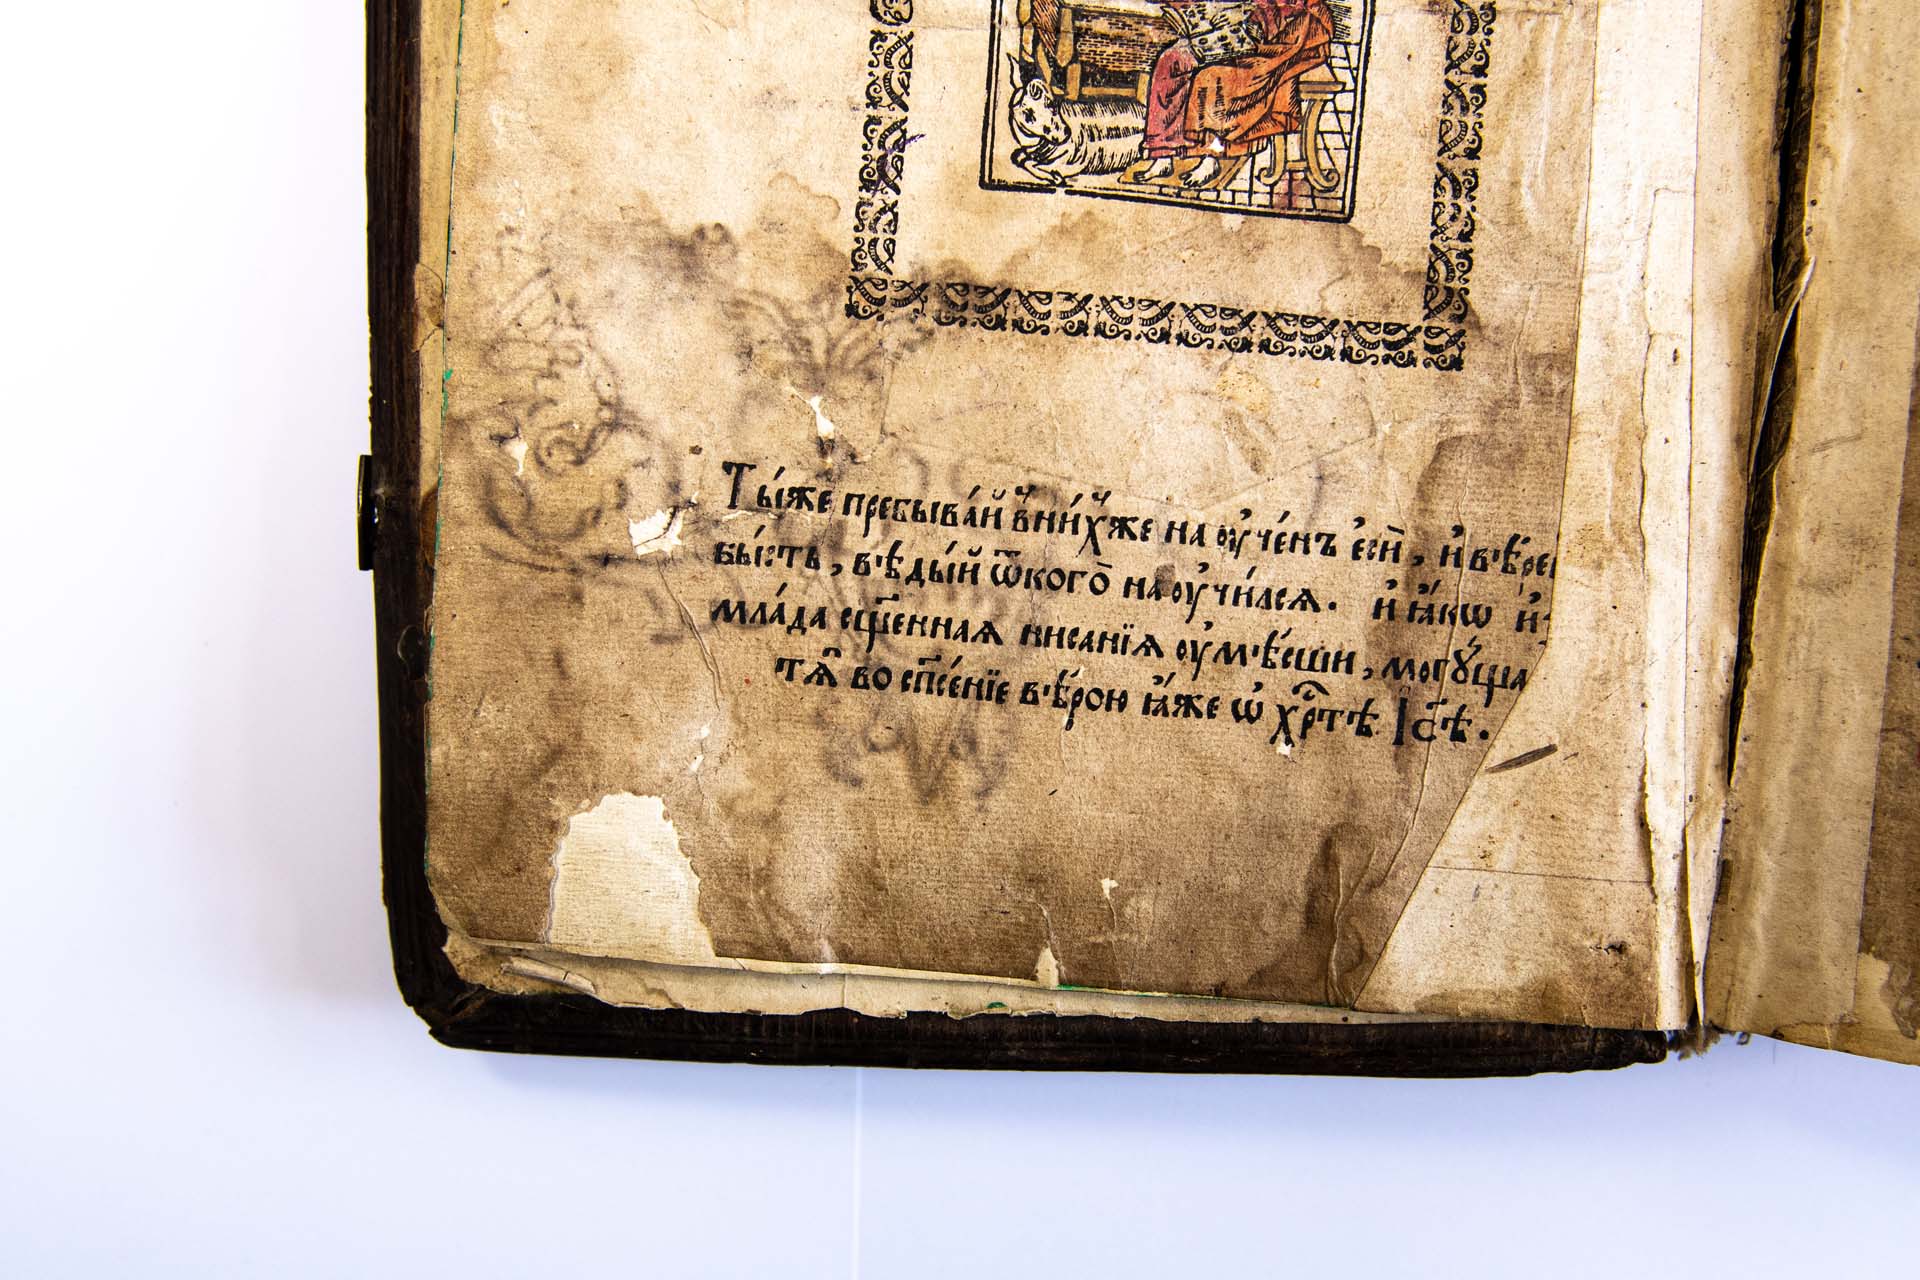 Ты́же пребыва́й в̾ни́хже на оу҆че́нъ є҆сѝ, и҆ вѣ́ре
бы́сть, вѣды́й ѿкого̀ на оу҆чи́лсѧ. и҆ ꙗ҆́кѡ и҆з
мла́да сщ҃е́ннаѧ писанїѧ оу҆мѣ́еши, могꙋ́щаѧ
тѧ̀ во сп҃се́нїе вѣ́рою ꙗ҆́же ѡ҆ хрⷭ҇тѣ̀ І҆с҃ѣ.